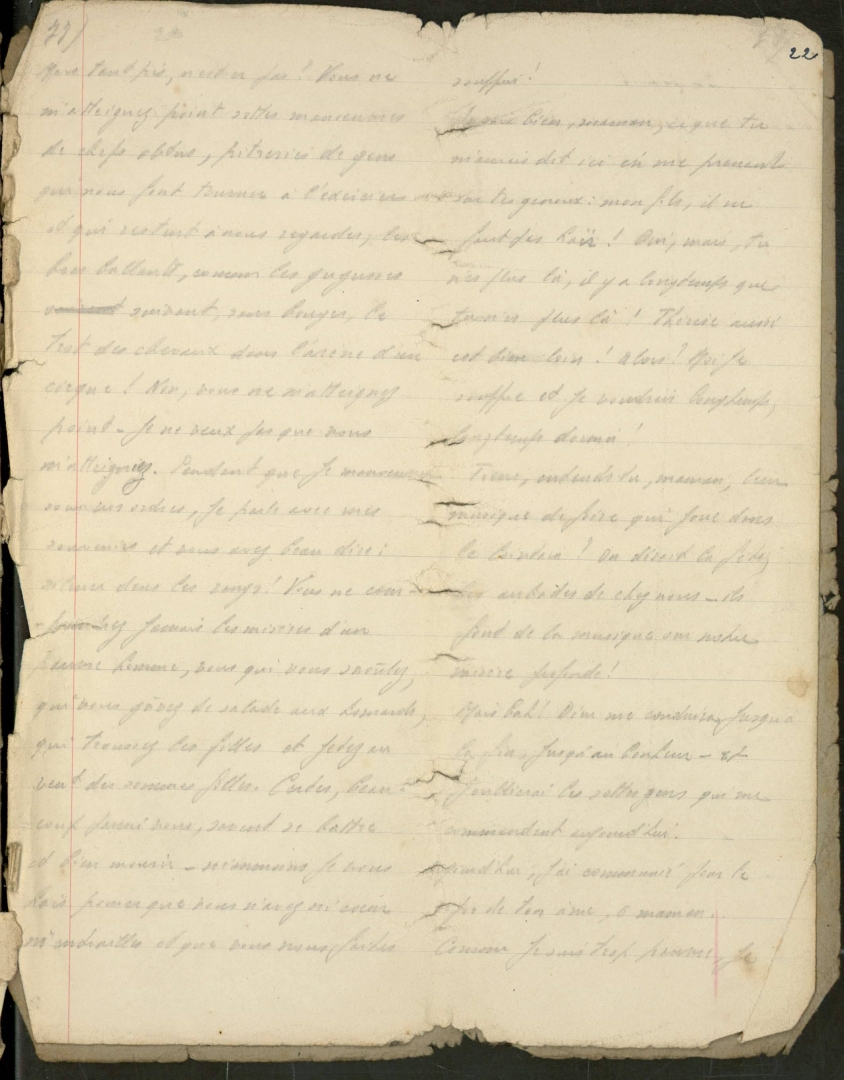 22
Mais tant pis, n'est-ce pas! Vous ne
m'atteignez point sottes manoeuvres
de chefs obtus, pitreries de gens
qui nous font tourner à l'exercice
et qui restent à nous regarder, les
bras ballants, comme les gugusses
suivent, sans bouger, le
trot des chevaux dans l'arène d'un
cirque! Non, vous ne m'atteignez
point. Je ne veux pas que vous
m'atteigniez. Pendant que je manoeuvre
sous vos ordres, je parle avec mes
souvenirs et vous avez beau dire:
silence dans les rangs! Vous ne com-
jamais les misères d'un
pauvre homme, vous qui vous saoûlez,
qui vous de salade aux homards,
qui troussez les filles et fêtez au
vent des filles. Certes, beau-
coup parmi vous, savent se battre
et bien mourir - néanmoins je vous
hais parce que vous n'avez ni coeur
ni entrailles et que vous nous faites
souffrir!
Je sais bien, maman, ce que tu
m'aurais dit ici en me prenant
sur tes genoux: mon fils, il ne
faut pas haïr! Oui, mais, tu
n'es plus là, il y a longtemps que
tu n'es plus là! Thérèse aussi
est bien loin! Alors? Moi je
souffre et je voudrais longtemps,
longtemps dormir!
Tiens, entends-tu, maman, cette
musique de foire qui joue dans
le lointain? On dirait la fête,
les aubades de chez nous - ils
font de la musique sur notre
misère profonde!
Mais bah! Dieu me conduira jusqu'à
la fin, jusqu'au bonheur - et
j'oublierai les sottes gens qui me
commandent aujourd'hui.
, j'ai communié pour le
de ton âme, o maman.
Comme je suis trop pauvre, je